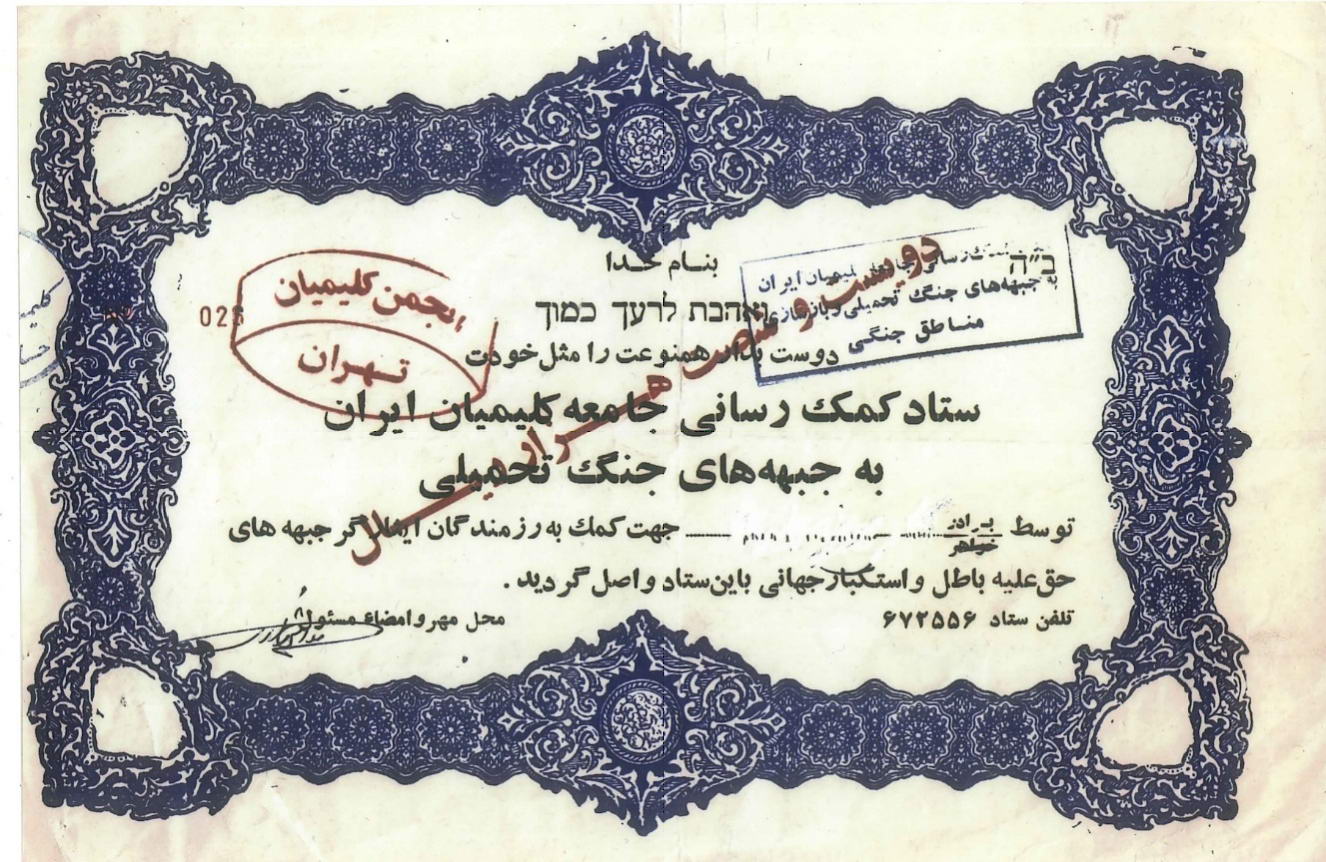 بنام خدا
ב״ה
ואהבת לרעך כמוך
دوست بدار همنوعت را مثل خودت
ستاد کمک رسانی جامعه کلیمیان ایران
به جبهه‌های جنگ تحمیلی
توسط برادر خواهر جهت کمک به رزمندگان ایثارگر جبهه های
حق علیه باطل و استکبار جهانی باین ستاد واصل گردید .
تلفن ستاد ۶۷۲۵۵۶
محل مهر و امضاء مسئول
انجمن کلیمیان
تهران
کمک رسانی جامعه کلیمیان ایران
به جبهه‌های جنگ تحمیلی و بازسازی
مناطق جنگی
دویست و شصت هزار ریال